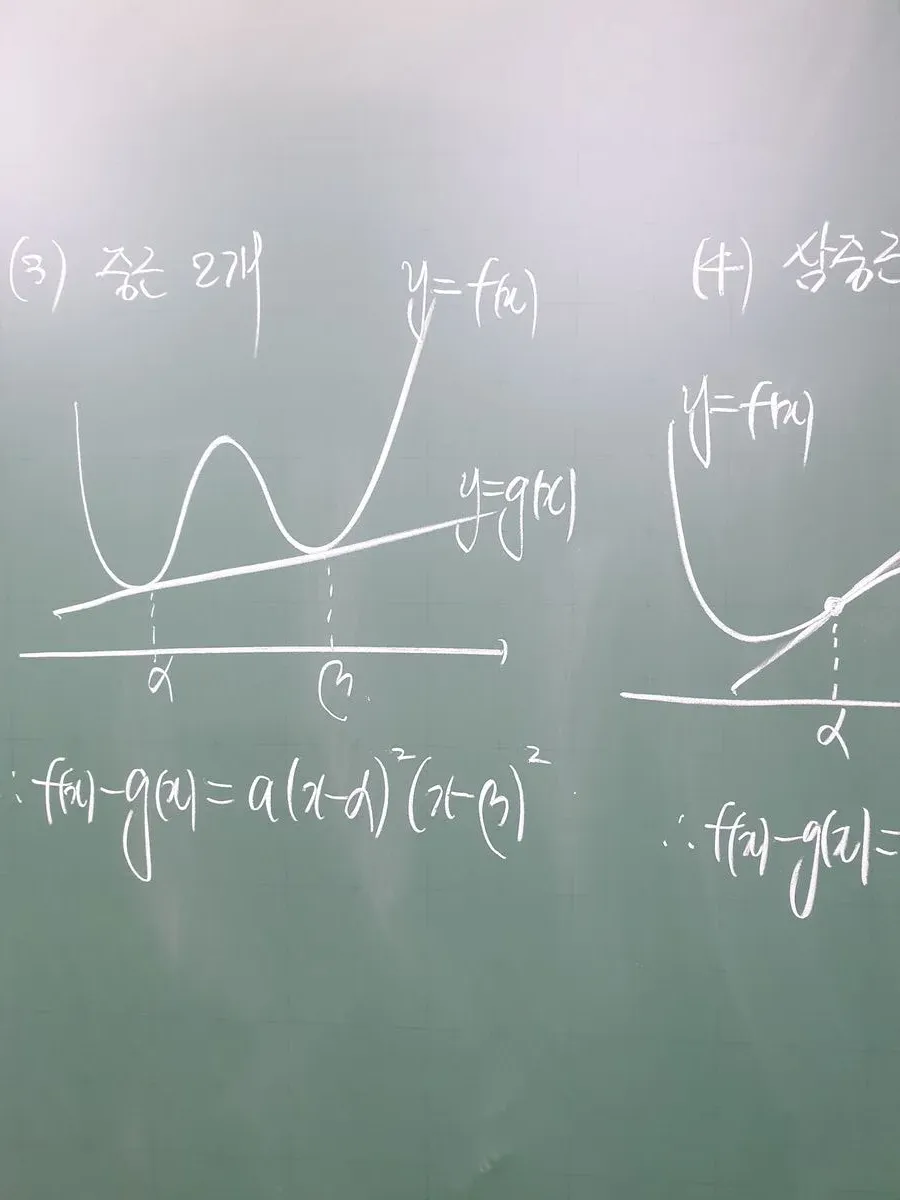 (3) 중근 2개
y=f(x)
y=g(x)
α
β
∴ f(x)-g(x)=a(x-α)²(x-β)²
(4) 삼중근
y=f(x)
α
∴ f(x)-g(x)=